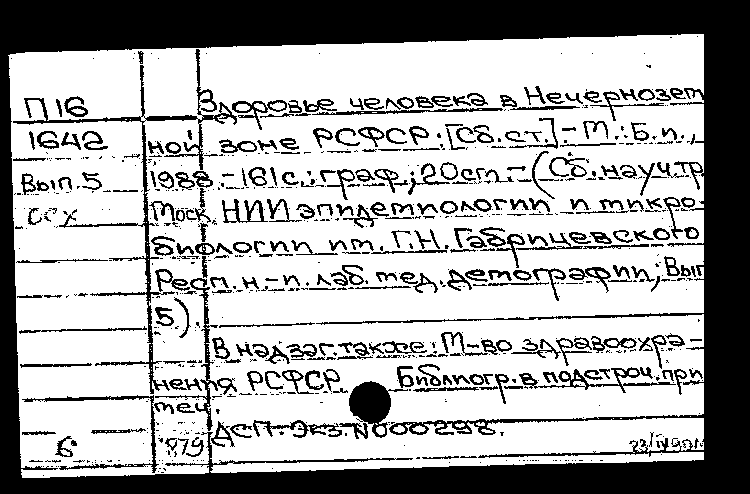 П 16 Здоровье человека в Нечернозем
1642 ной зоне РСФСР: [Сб.ст.]-М.:Б.и.,
Вып.5 1988.-161с.:граф.;20см.-(Сб.науч.тр
ССХ Моск. НИИ эпидемиологии и микро-
биологии им. Г.Н. Габричевского
Респ.н.-и.лаб.мед.демографии; Вып
5).
В надзаг.также: М-во здравоохра-
нения РСФСР. Библиогр.в подстроч.при
меч.
ДСП.Экз.N000298.
6 879 23/IV90